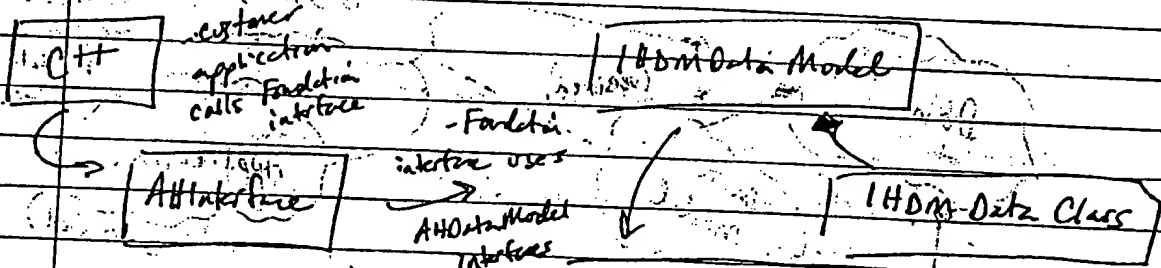 C++
customer
application
calls Foundation
interface
IHDMData Model
- Foundation
interface uses
AHDataModel
interfaces
AHInterface
IHDM-Data Class